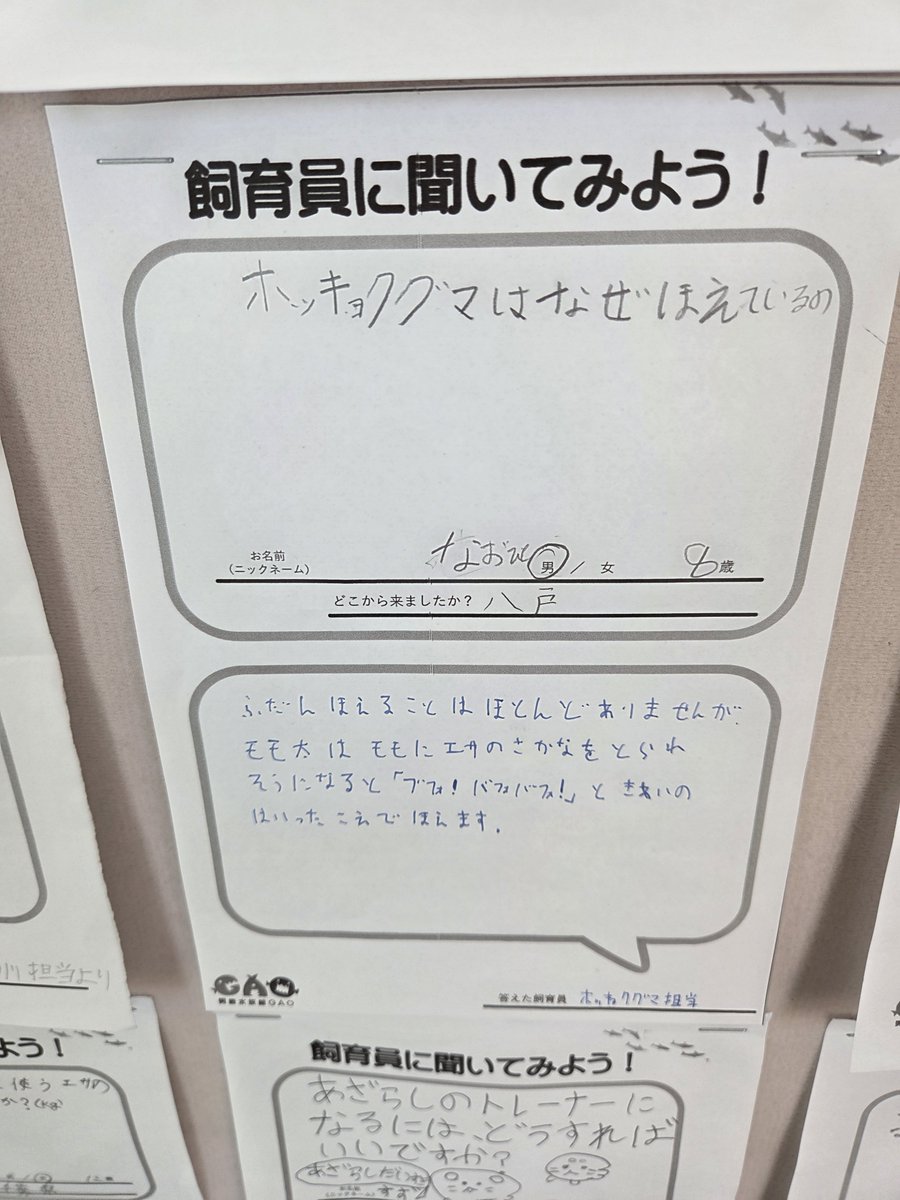 飼育員に聞いてみよう!
ホッキョクグマはなぜほえているの
お名前
(ニックネーム)
なおひも 男 / 女 8歳
どこから来ましたか? 八戸
ふだんほえることはほとんどありませんが、
モモ太はモモにエサのさかなをとられ
そうになると「ブフォ! バフォバフォ!」ときあいの
はいったこえでほえます。
GAO
男鹿水族館GAO
答えた飼育員 ホッキョクグマ担当
担当より
よう!
使うエサの
か?(kg)
飼育員に聞いてみよう!
あざらしのトレーナーに
なるには、どうすれば
いいですか?
あざらしだいすき
お名前
(ニックネーム)
すず